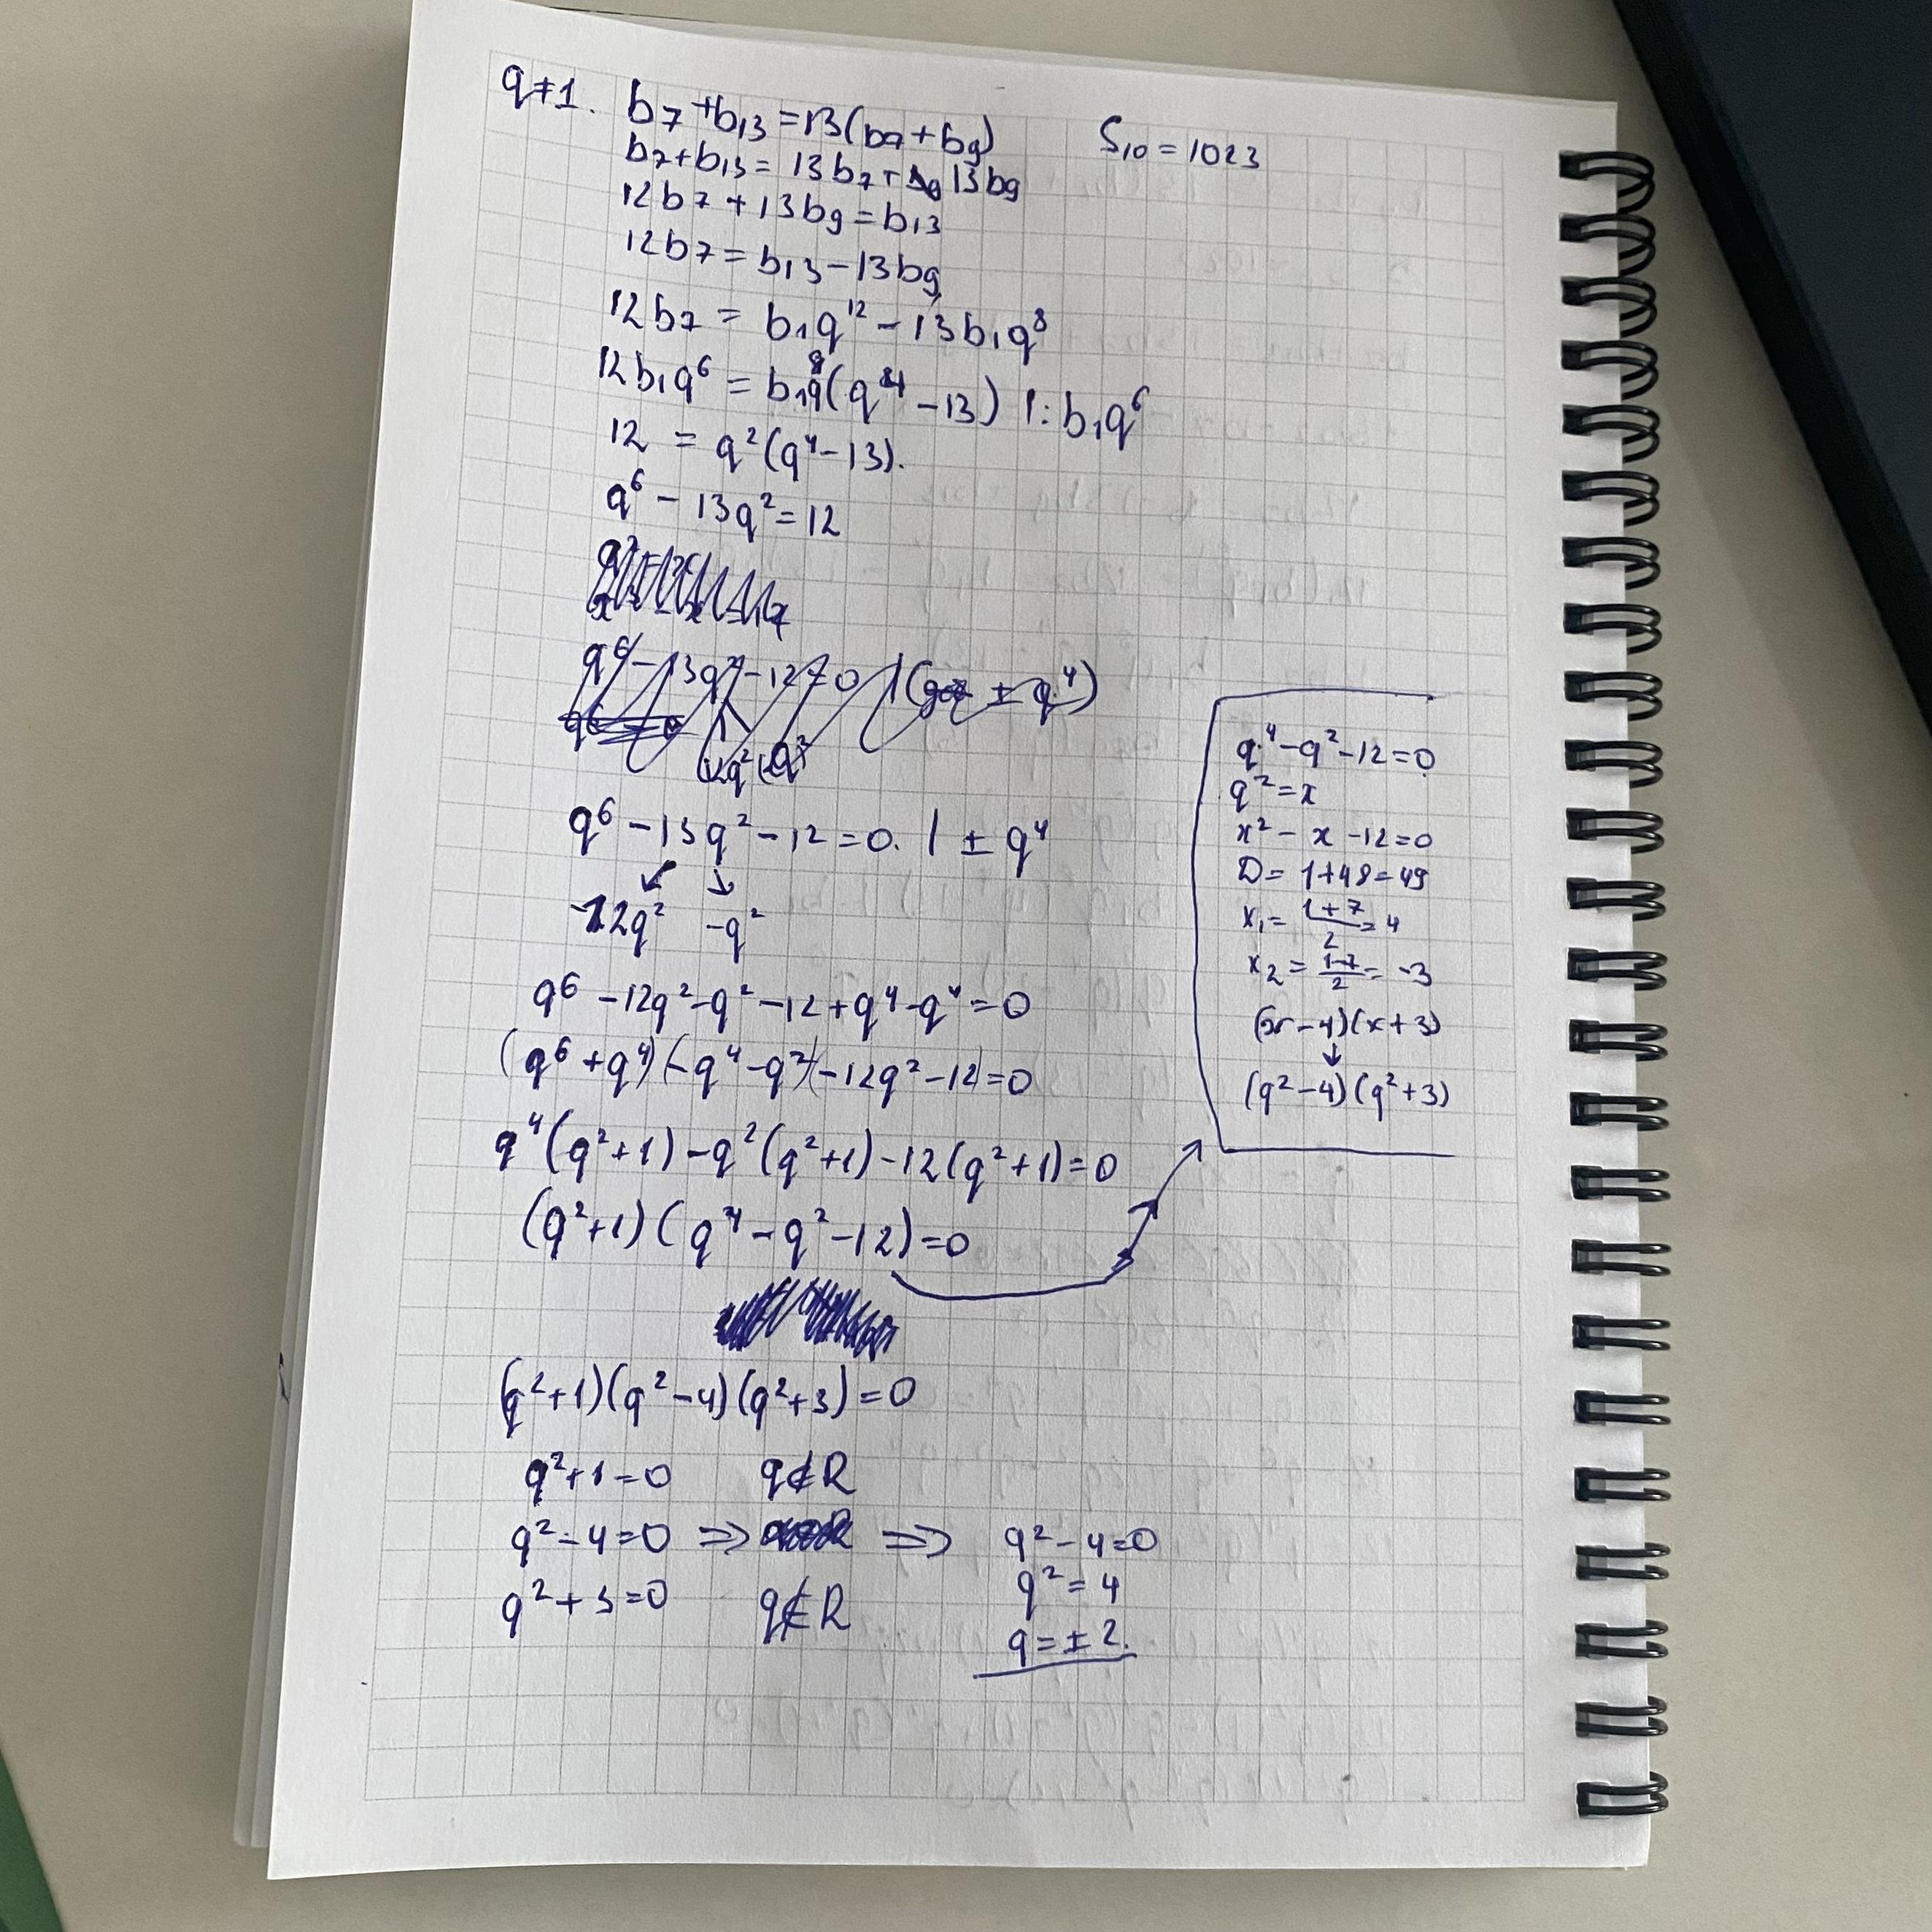 q≠1. b₇+b₁₃=13(b₇+b₉) S₁₀=1023
b₇+b₁₃=13b₇+13b₉
12b₇+13b₉=b₁₃
12b₇=b₁₃-13b₉
12b₇=b₁q¹²-13b₁q⁸
12b₁q⁶=b₁q⁸(q⁴-13) |:b₁q⁶
12=q²(q⁴-13).
q⁶-13q²=12
q⁶-13q²-12=0. | ± q⁴
↙ ↘
-12q² -q²
q⁶-12q²-q²-12+q⁴-q⁴=0
(q⁶+q⁴)(-q⁴-q²)(-12q²-12)=0
q⁴(q²+1)-q²(q²+1)-12(q²+1)=0
(q²+1)(q⁴-q²-12)=0
q⁴-q²-12=0
q²=x
x²-x-12=0
D=1+48=49
x₁=(1+7)/2=4
x₂=(1-7)/2=-3
(x-4)(x+3)
↓
(q²-4)(q²+3)
(q²+1)(q²-4)(q²+3)=0
q²+1=0 q∉R
q²-4=0 => => q²-4=0
q²=4
q²+3=0 q∉R
q=±2.